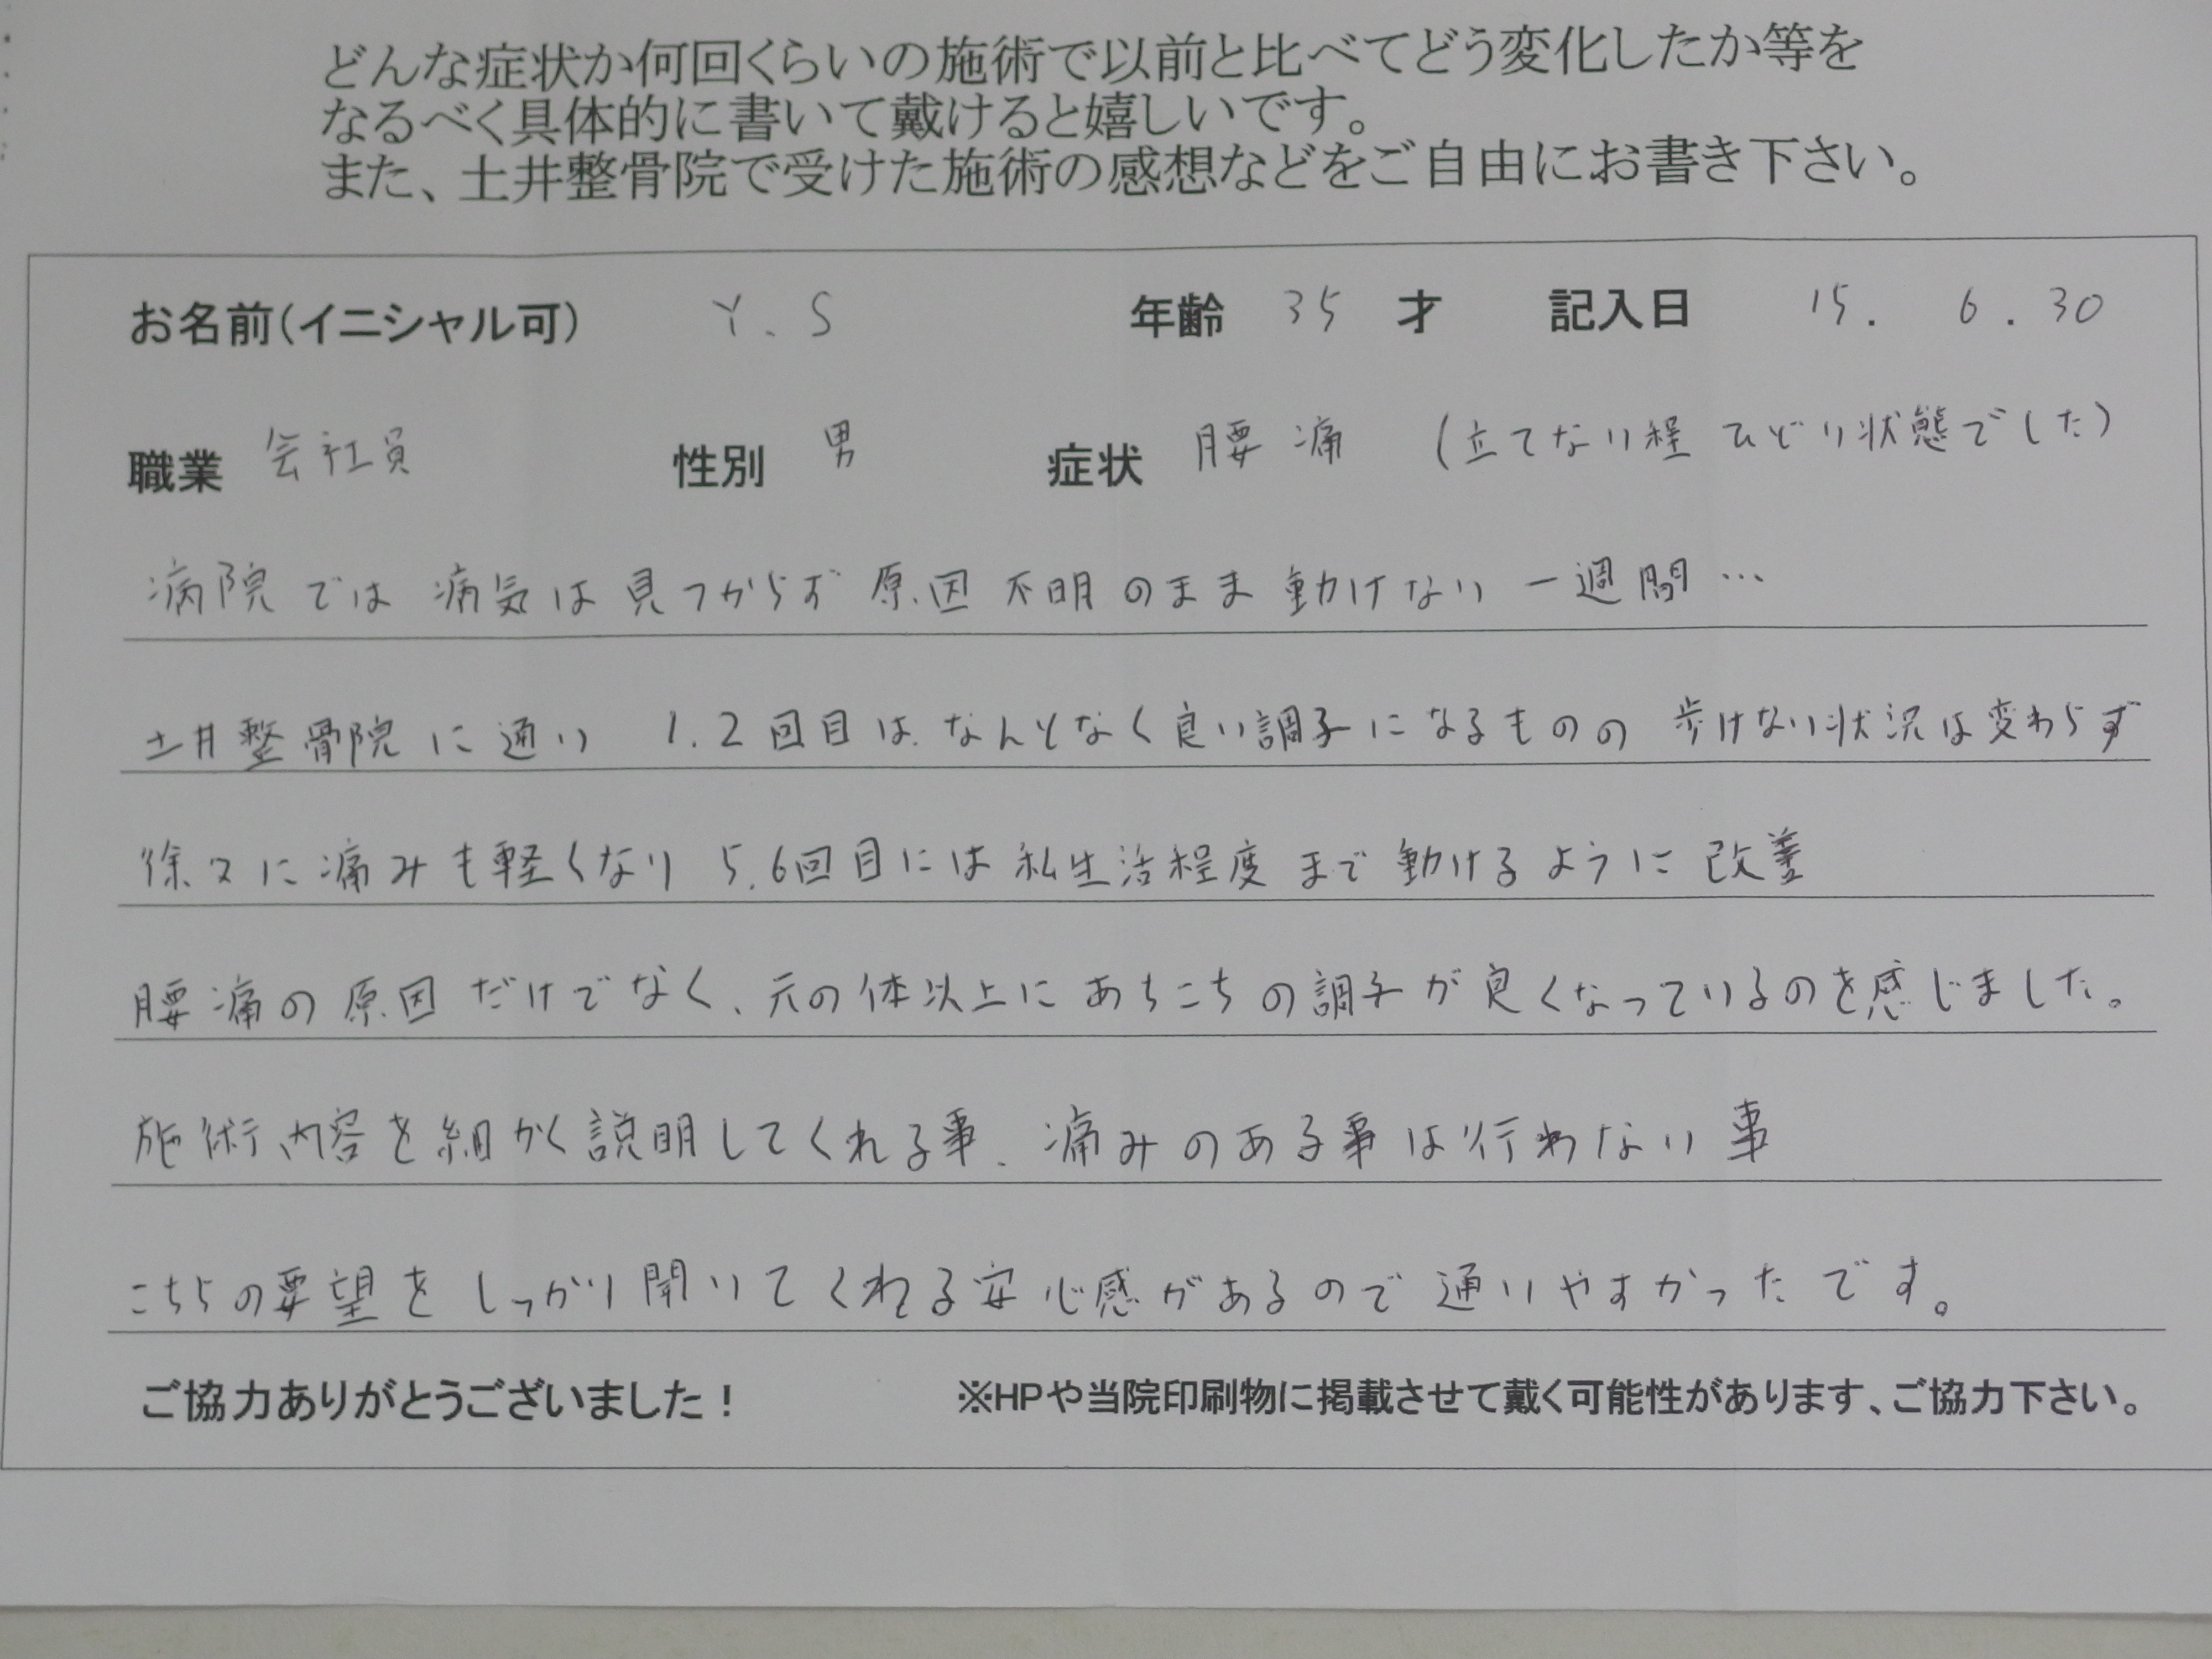 どんな症状か何回くらいの施術で以前と比べてどう変化したか等を
なるべく具体的に書いて戴けると嬉しいです。
また、土井整骨院で受けた施術の感想などをご自由にお書き下さい。
お名前(イニシャル可) Y.S 年齢 35 才 記入日 15. 6.30
職業 会社員 性別 男 症状 腰痛 (立てない程ひどい状態でした)
病院では病気は見つからず原因不明のまま動けない一週間…
土井整骨院に通い 1.2回目は、なんとなく良い調子になるものの 歩けない状況は変わらず
徐々に痛みも軽くなり 5.6回目には私生活程度まで動けるように改善
腰痛の原因だけでなく、元の体以上にあちこちの調子が良くなっているのを感じました。
施術内容を細かく説明してくれる事、痛みのある事は行わない事
こちらの要望をしっかり聞いてくれる安心感があるので通いやすかったです。
ご協力ありがとうございました! ※HPや当院印刷物に掲載させて戴く可能性があります、ご協力下さい。